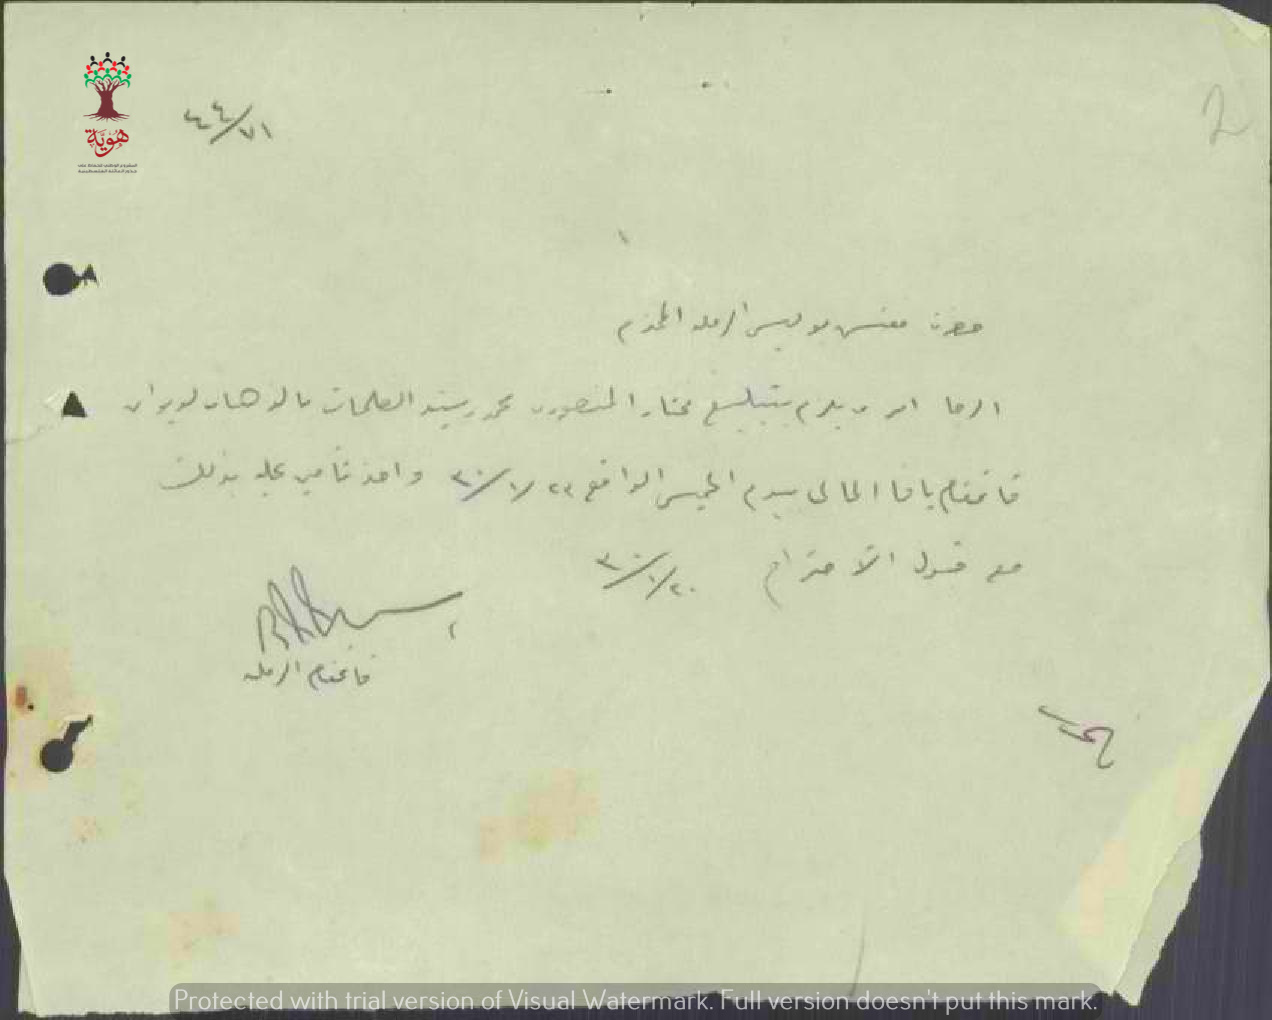 ٤٤/٧١
2
هوية
حضرة مفتش بوليس الرمله المحترم
الرجا امر من يلزم بتبليغ مختار المنصوره محمد رشيد بالذهاب لديوان
قائمقام يافا الحالى يوم الخميس الواقع ٢٣/١/٣٠ واخذ تأمين عليه بذلك
مع قبول الاحترام ٢٠/١/٣٠
قائمقام الرمله
Protected with trial version of Visual Watermark. Full version doesn't put this mark.